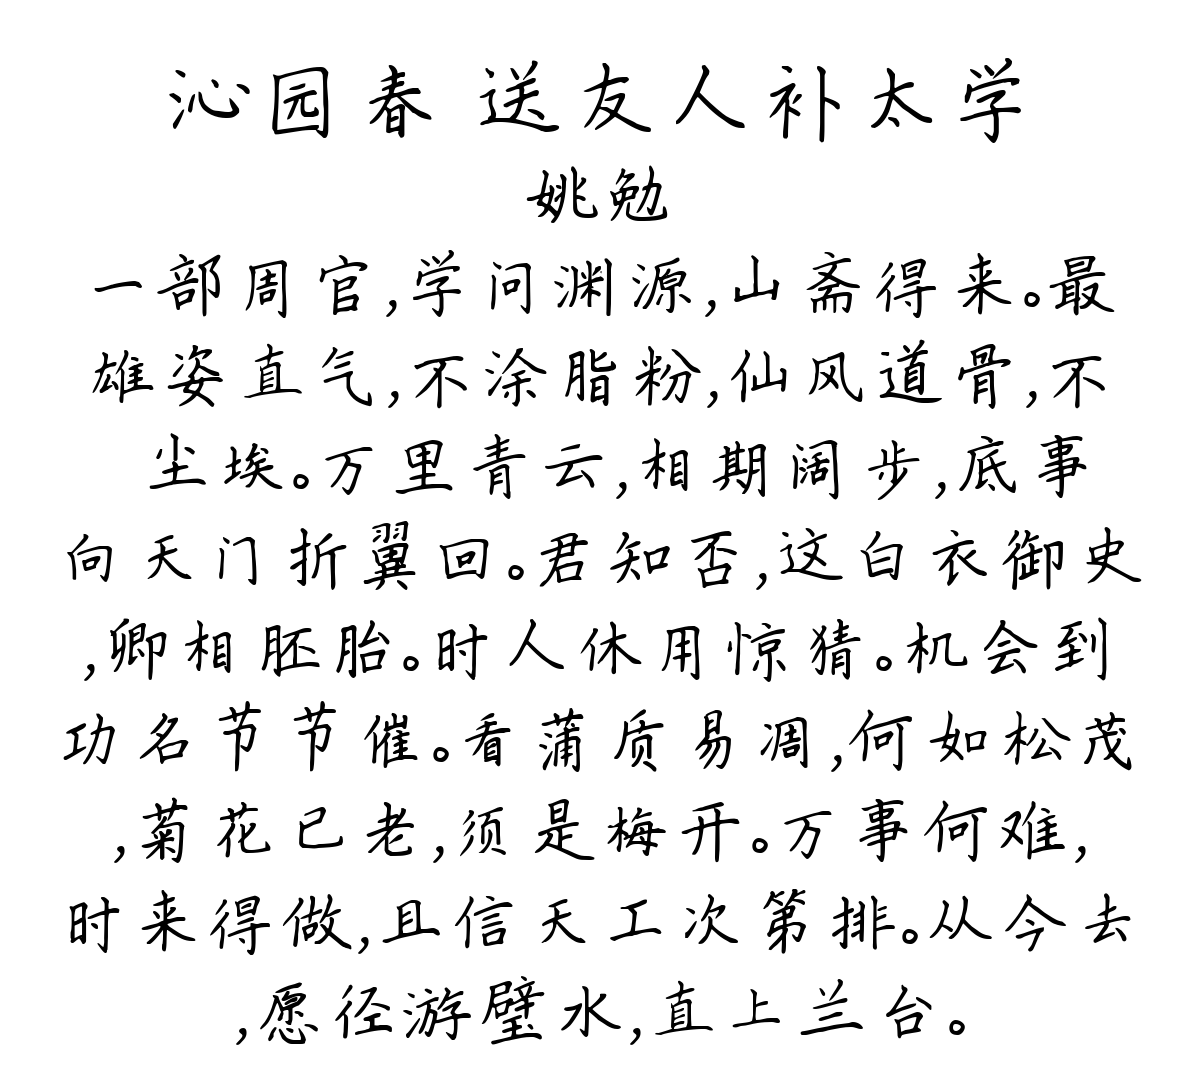 沁园春 送友人补太学
姚勉
一部周官,学问渊源,山斋得来。最
雄姿直气,不涂脂粉,仙风道骨,不
尘埃。万里青云,相期阔步,底事
向天门折翼回。君知否,这白衣御史
,卿相胚胎。时人休用惊猜。机会到
功名节节催。看蒲质易凋,何如松茂
,菊花已老,须是梅开。万事何难,
时来得做,且信天工次第排。从今去
,愿径游璧水,直上兰台。